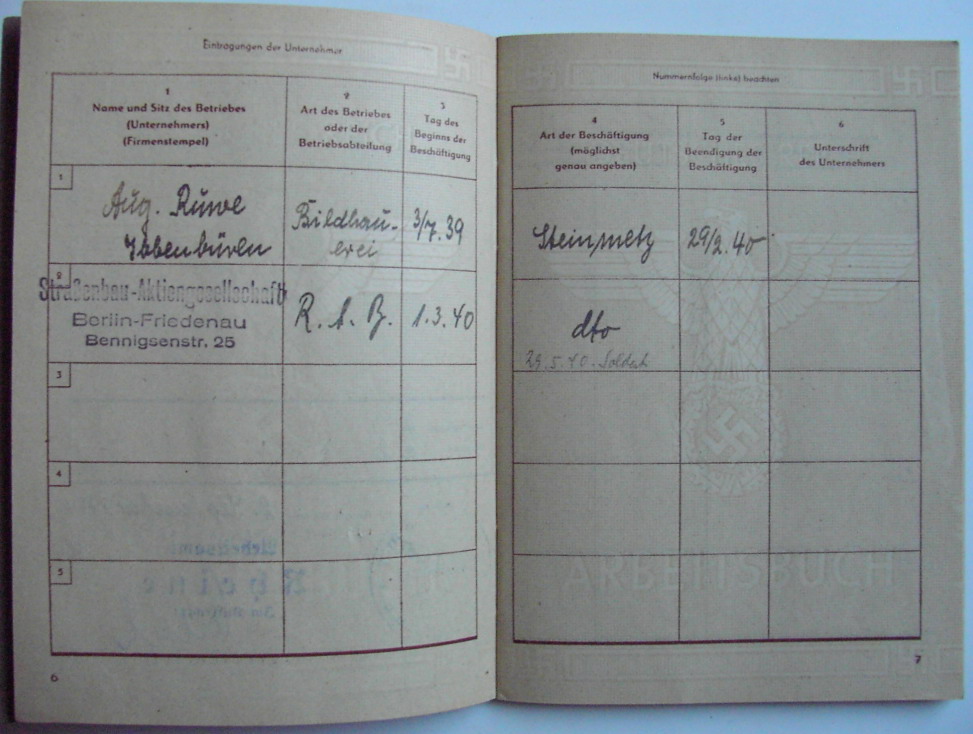 Eintragungen der Unternehmer
1
Name und Sitz des Betriebes
(Unternehmers)
(Firmenstempel)
2
Art des Betriebes
oder der
Betriebsabteilung
3
Tag des
Beginns der
Beschäftigung
1
Aug. Ruwe
Ibbenbüren
Bildhau-
erei
3/7.39
2
Straßenbau-Aktiengesellschaft
Berlin-Friedenau
Bennigsenstr. 25
R. A. B.
1.3.40
3
4
5
6
Nummernfolge (links) beachten
4
Art der Beschäftigung
(möglichst
genau angeben)
5
Tag der
Beendigung der
Beschäftigung
6
Unterschrift
des Unternehmers
Steinmetz
29/2.40
dto
29.5.40. Soldat
ARBEITSBUCH
7